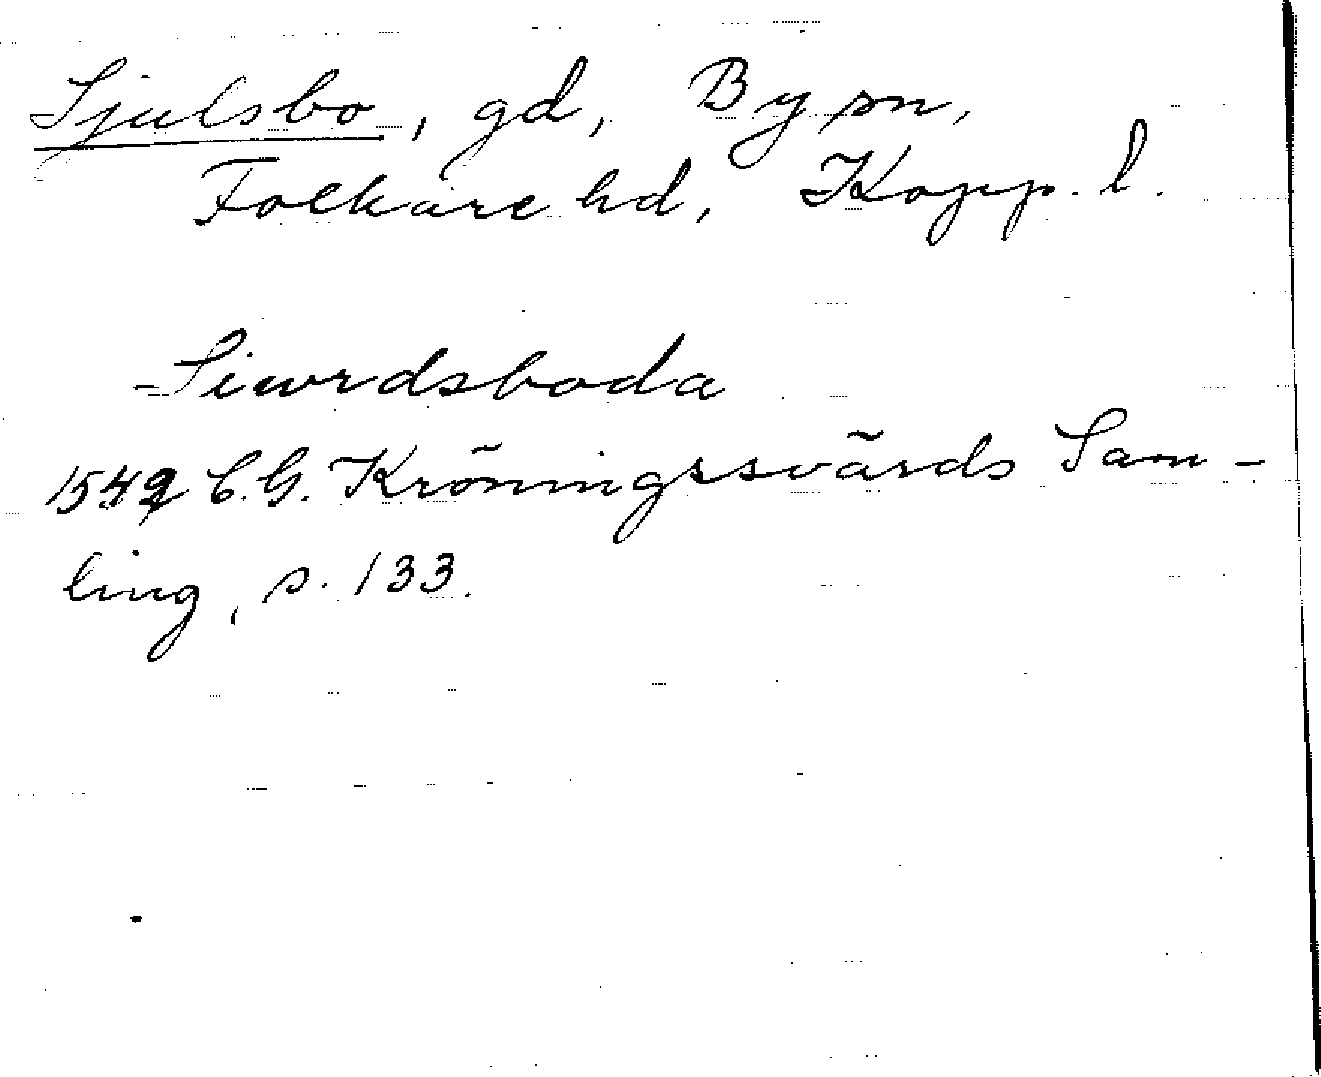 Sjulsbo, gd, By sn,
Folkare hd, Kopp. l.
Siwrdsboda
1542 C.G. Kröningssvärds Sam-
ling, s. 133.